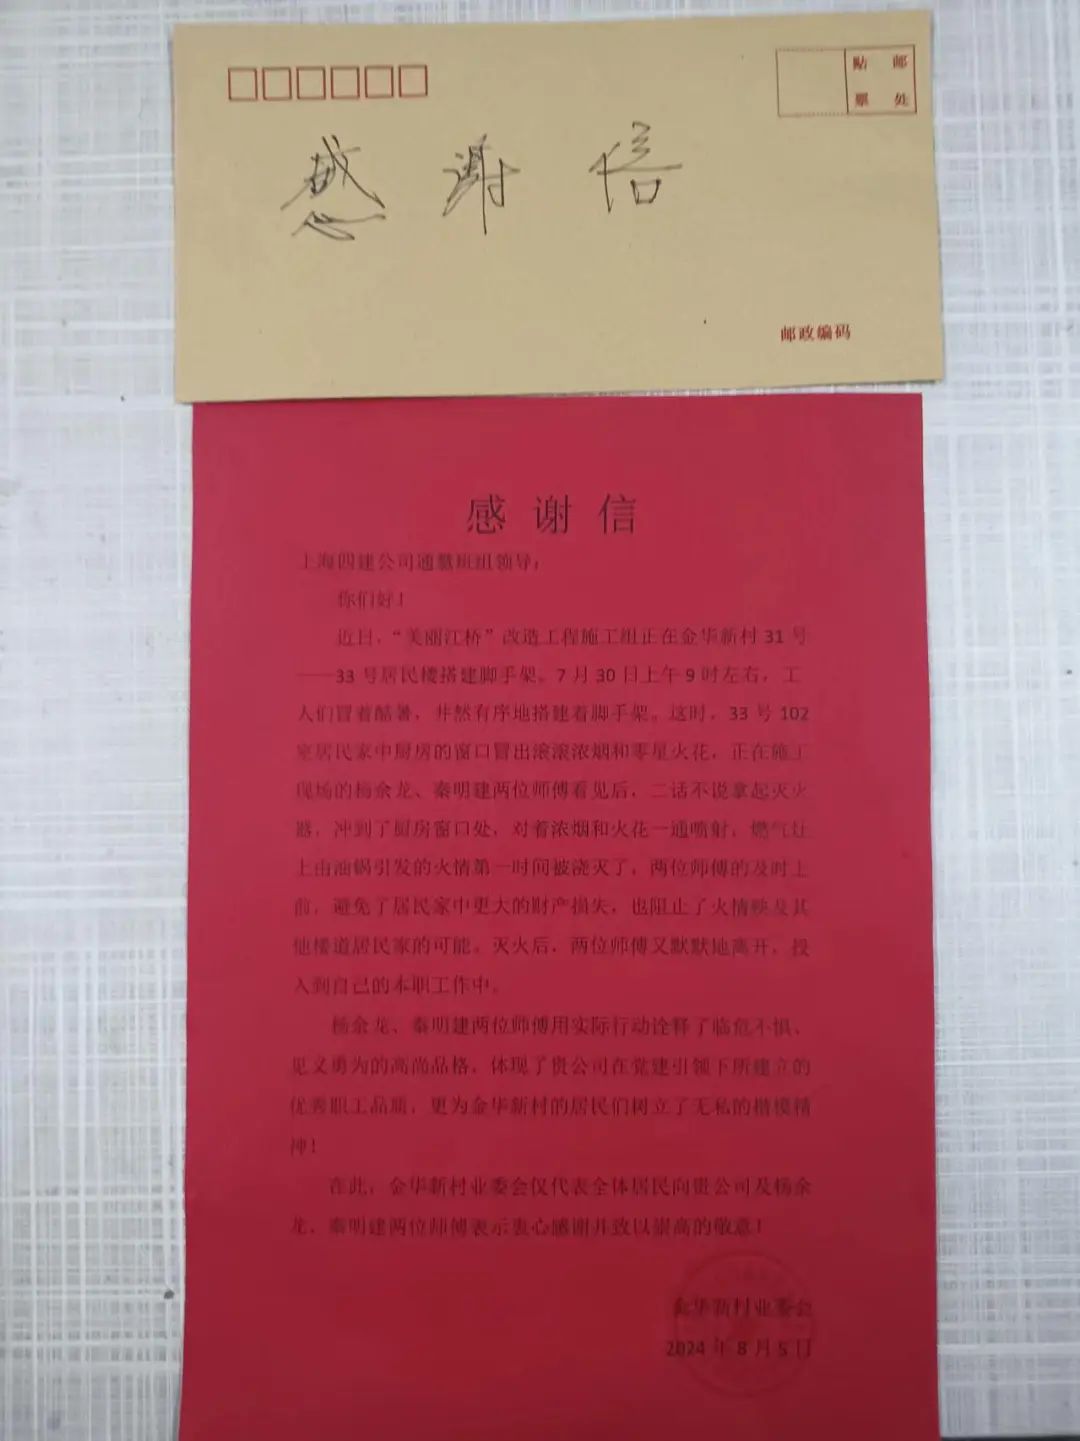 贴 邮
票 处
感谢信
邮政编码
感谢信
上海四建公司通慧班组领导：
你们好！
近日，“美丽江桥”改造工程施工组正在金华新村31号
——33号居民楼搭建脚手架。7月30日上午9时左右，工
人们冒着酷暑，井然有序地搭建着脚手架。这时，33号102
室居民家中厨房的窗口冒出滚滚浓烟和零星火花，正在施工
现场的杨余龙、秦明建两位师傅看见后，二话不说拿起灭火
器，冲到了厨房窗口处，对着浓烟和火花一通喷射，燃气灶
上由油锅引发的火情第一时间被浇灭了，两位师傅的及时上
前，避免了居民家中更大的财产损失，也阻止了火情殃及其
他楼道居民家的可能。灭火后，两位师傅又默默地离开，投
入到自己的本职工作中。
杨余龙、秦明建两位师傅用实际行动诠释了临危不惧、
见义勇为的高尚品格，体现了贵公司在党建引领下所建立的
优秀职工品质，更为金华新村的居民们树立了无私的楷模精
神！
在此，金华新村业委会仅代表全体居民向贵公司及杨余
龙、秦明建两位师傅表示衷心感谢并致以崇高的敬意！
金华新村业委会
2024年8月5日